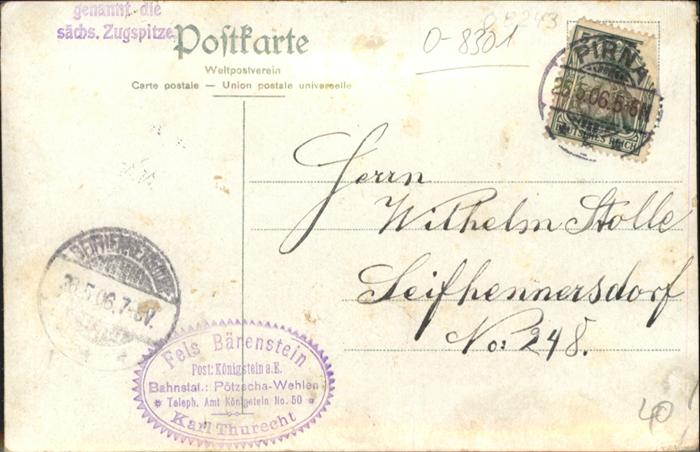 genannt die
sächs. Zugspitze.
Postkarte
Weltpostverein
Carte postale — Union postale universelle
0-8301
PIRNA
26.5.06.5-6N.
DEUTSCHES REICH
Herrn
Wilhelm Stolle
Seifhennersdorf
No: 248.
SEIFHENNERSDORF
26.5.06.7-8V.
Fels Bärenstein
Post: Königstein a.E.
Bahnstat.: Pötzscha-Wehlen
* Teleph. Amt Königstein No. 50 *
Karl Thurecht
40